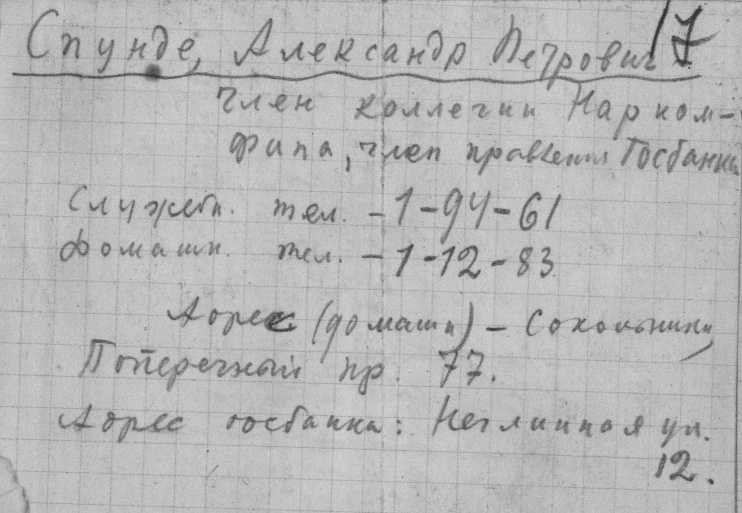 17
Спунде, Александр Петрович
член коллегии Нарком-
фина, член правления Госбанка
Служебн. тел. – 1-94-61
Домашн. тел. – 1-12-83
Адрес (домашн) – Сокольники,
Поперечный пр. 77.
Адрес госбанка: Неглинная ул.
12.